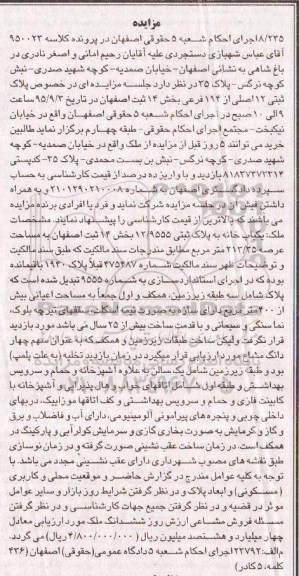 مزایده
۸/۲۳۵اجرای احکام شعبه ۵ حقوقی اصفهان در پرونده کلاسه ۹۵۰۰۲۳
آقای عباس شهبازی دستجردی علیه آقایان رحیم امانی و اصغر نادری در
باغ شاهی به نشانی اصفهان - خیابان صمدیه - کوچه شهید صدری - نبش
کوچه نرگس - پلاک ۳۵ در نظر دارد جلسه مزایده ای در خصوص پلاک
ثبتی ۱۲ اصلی از ۱۹۴ فرعی بخش ۱۴ ثبت اصفهان در تاریخ ۹۵/۹/۳ ساعت
۹ الی ۱۰ صبح در اجرای احکام شعبه ۵ حقوقی اصفهان واقع در خیابان
نیکبخت - مجتمع اجرای احکام حقوقی - طبقه چهارم برگزار نماید طالبین
خرید می توانند ۵ روز قبل از مزایده از ملک واقع در خیابان صمدیه - کوچه
شهید صدری - کوچه نرگس - نبش بن بست محمدی - پلاک ۳۵ - کدپستی
۸۱۸۳۷۳۷۳۱۴ بازدید و با واریز ده درصد از قیمت کارشناسی به حساب
سپرده دادگستری اصفهان به شماره ۲۱۰۱۲۹۰۲۱۰۰۰۸ و به همراه
داشتن فیش آن در جلسه مزایده شرکت نماید و فرد یا افرادی برنده مزایده
می باشند که بالاترین از قیمت کارشناسی را پیشنهاد نمایند. مشخصات
ملک: یکباب خانه به پلاک ثبتی ۱۲/۹۵۵۵ بخش ۱۴ ثبت اصفهان به مساحت
عرصه ۲۱۲/۳۵ متر مربع مطابق مندرجات سند مالکیت که طبق سند مالکیت
و توضیحات ظهر سند مالکیت شماره ۴۷۵۴۸۷ قبلاً پلاک ۱۹۴۰ باقیمانده
بوده که در اجرای استانداردسازی به شماره ۹۵۵۵ تبدیل شده است که
پلاک شامل سه طبقه زیرزمین، همکف و اول جمعاً به مساحت اعیانی بیش
از ۴۰۰ متر مربع دارای سازه به صورت نیمه اسکلت سقفهای تیرچه بلوک
نما سنگی و سیمانی و با قدمت ساخت بیش از ۲۵ سال می باشد مورد بازدید
قرار گرفت ولیکن ساخت طبقات زیرزمین و همکف که به عنوان سهم چهار
دانگ مشاعی مورد ارزیابی قرار میگیرد در زمان بازدید تخلیه (به علت پلمپ)
بود و طبقه زیرزمین شامل یک سالن به علاوه آشپزخانه و حمام و سرویس
بهداشتی و طبقه اول شامل اتاقهای خواب و هال پذیرایی و آشپزخانه با
کابینت فلزی و حمام و سرویس بهداشتی و کف اتاقها موزاییک، دربهای
داخلی چوبی و پنجره های پیرامونی آلومینیومی، دارای آب و فاضلاب و برق
و گاز و گرمایش به صورت بخاری گازی و سرمایش کولر آبی و پارکینگ در
همکف است. در زمان ساخت عقب نشینی صورت گرفته و در زمان نوسازی
طبق نقشه های مصوب شهرداری دارای عقب نشینی مجدد می باشد. با
توجه به کلیه عوامل مندرج در گزارش حاضر و موقعیت محلی و کاربری
(مسکونی) و ابعاد پلاک و در نظر گرفتن شرایط روز بازار و سایر عوامل
موثر در قضیه و در نظر گرفتن جمیع جهات کارشناسی و در نظر گرفتن
مسئله فروش مشاعی ارزش روز ششدانگ ملک مورد ارزیابی معادل
چهار میلیارد و هشتصد میلیون ریال (۴/۸۰۰/۰۰۰/۰۰۰ ریال) می گردد.
م الف: ۲۳۷۹۲ اجرای احکام شعبه ۵ دادگاه عمومی (حقوقی) اصفهان (۴۳۶
کلمه، ۵ کادر)